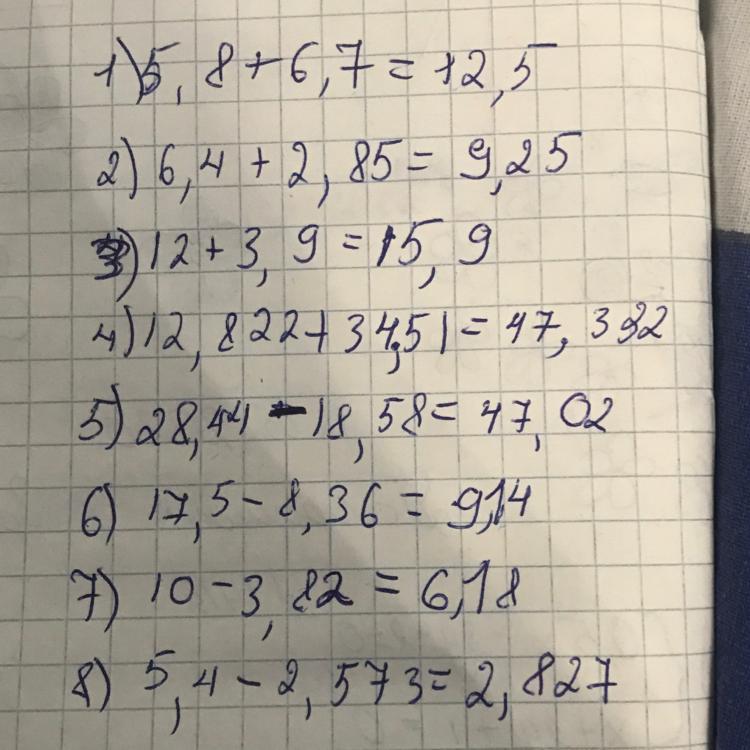 1) 5,8+6,7=12,5
2) 6,4+2,85=9,25
3) 12+3,9=15,9
4) 12,822+34,51=47,332
5) 28,44-18,58=47,02
6) 17,5-8,36=9,14
7) 10-3,82=6,18
8) 5,4-2,573=2,827